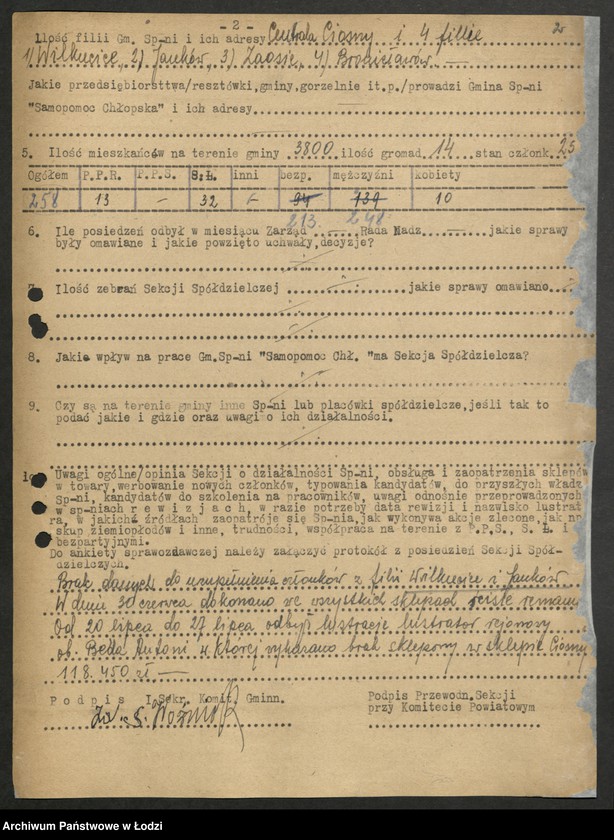 - 2 -
2
Ilość filii Gm. Sp-ni i ich adresy Centrala Ciosny i 4 filie
1) Wilkucice, 2) Janków, 3) Zaosie, 4) Bronisławów
Jakie przedsiębiorsttwa/resztówki,gminy,gorzelnie it.p./prowadzi Gmina Sp-ni
"Samopomoc Chłopska" i ich adresy
5. Ilość mieszkańców na terenie gminy 3800 ilość gromad 14 stan członk. 25
Ogółem P.P.R. P.P.S. S.Ł. inni bezp. mężczyźni kobiety
258 13 - 32 - 94 739 10
213. 248
6. Ile posiedzeń odbył w miesiącu Zarząd — Rada Nadz. — jakie sprawy
były omawiane i jakie powzięto uchwały,decyzje?
7. Ilość zebrań Sekcji Spółdzielczej jakie sprawy omawiano
8. Jakie wpływ na prace Gm.Sp-ni "Samopomoc Chł. "ma Sekcja Spółdzielcza?
9. Czy są na terenie gminy inne Sp-ni lub placówki spółdzielcze,jeśli tak to
podać jakie i gdzie oraz uwagi o ich działalności.
10 Uwagi ogólne/opinia Sekcji o działalności Sp-ni, obsługa i zaopatrzenia sklepów
w towary,werbowanie nowych członków, typowania kandydatów, do przyszłych władz
Sp-ni, kandydatów do szkolenia na pracowników, uwagi odnośnie przeprowadzonych
w sp-niach r e w i z j a c h, w razie potrzeby data rewizji i nazwisko lustrat
ra, w jakichś źródłach zaopatróje się Sp-nia,jak wykonywa akcje zlecone,jak np
skup ziemiopłodów i inne, trudności, współpraca na terenie z P.P.S., S. Ł. i
bezpartyjnymi.
Do ankiety sprawozdawczej należy załączyć protokół z posiedzeń Sekcji Spół-
dzielczych.
Brak danych do uzupełnienia członków z filii Wilkucice i Janków
W dniu 30 czerwca dokonano we wszystkich sklepach ścisłe remanen
Od 20 lipca do 27 lipca odbył lustracje lustrator rejonowy
ob. Beda Antoni u której wykazano brak sklepowy w sklepie Ciosny
118.450 zł —
P o d p i s I.Sekr. Komit. Gminn. Podpis Przewodn.Sekcji
przy Komitecie Powiatowym
Archiwum Państwowe w Łodzi